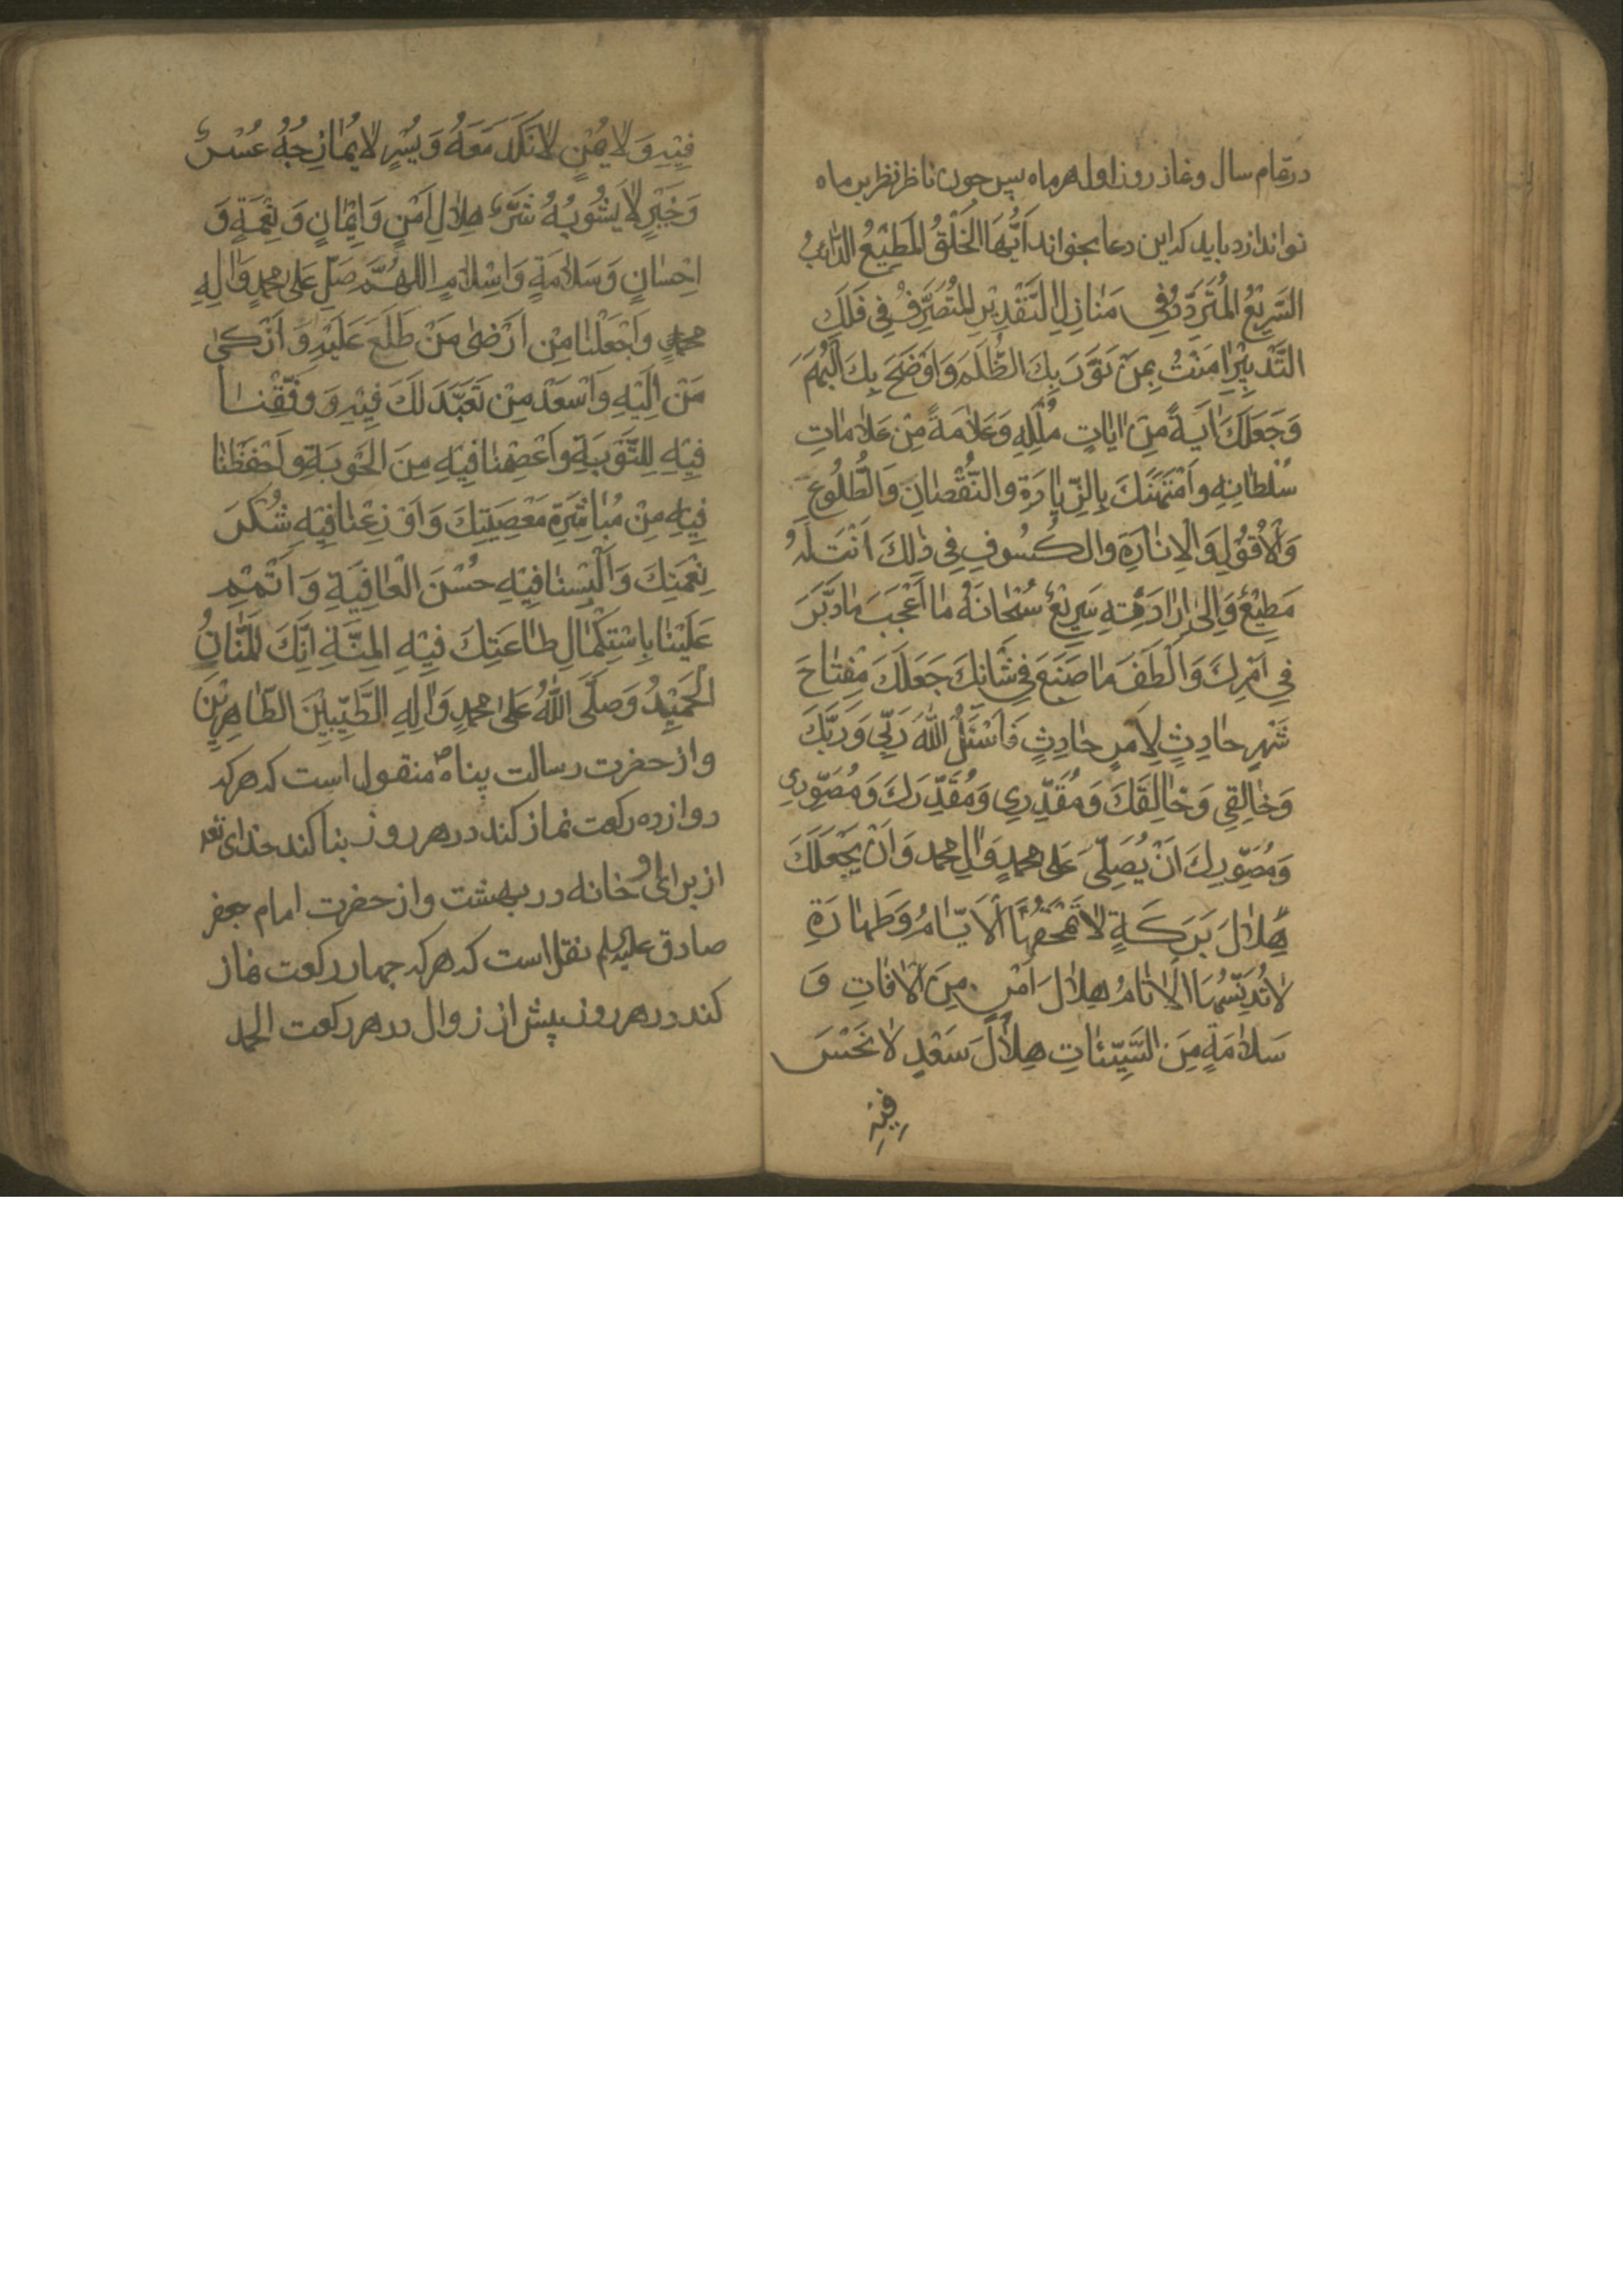 در تمام سال و نماز روز اول هر ماه پس چون ناظر نظر بر ماه
نو اندازد باید که این دعا بخواند اَیُّهَا الْخَلْقُ الْمُطِیْعُ الدّائبُ
السَّرِیْعُ الْمُتَرَدِّدُ فِی مَنٰازِلِ التَّقْدِیْرِ الْمُتَصَرِّفُ فِی فَلَكِ
التَّدْبِیْرِ اٰمَنْتُ بِمَنْ نَوَّرَ بِكَ الظُّلَمَ وَ اَوْضَحَ بِكَ الْبُهَمَ
وَ جَعَلَكَ اٰیَةً مِنْ اٰیٰاتِ مُلْكِهِ وَ عَلٰامَةً مِنْ عَلٰامٰاتِ
سُلْطٰانِهِ وَ امْتَهَنَكَ بِالزِّیٰادَةِ وَ النُّقْصٰانِ وَ الطُّلُوعِ
وَ الْاُفُوْلِ وَ الْاِنٰارَةِ وَ الْكُسُوفِ فِی ذٰلِكَ اَنْتَ لَهُ
مُطِیْعٌ وَ اِلیٰ اِرٰادَتِهِ سَرِیْعٌ سُبْحٰانَهُ مٰا اَعْجَبَ مٰا دَبَّرَ
فِی اَمْرِكَ وَ اَلْطَفَ مٰا صَنَعَ فِی شَأنِكَ جَعَلَكَ مِفْتٰاحَ
شَهْرٍ حٰادِثٍ لِاَمْرٍ حٰادِثٍ فَاَسْئَلُ اللهَ رَبِّی وَ رَبَّكَ
وَ خٰالِقِی وَ خٰالِقَكَ وَ مُقَدِّرِی وَ مُقَدِّرَكَ وَ مُصَوِّرِی
وَ مُصَوِّرَكَ اَنْ یُصَلِّیَ عَلیٰ مُحَمَّدٍ وَ اٰلِ مُحَمَّد وَ اَنْ یَجْعَلَكَ
هِلٰالَ بَرَكَةٍ لٰا تَمْحَقُهَا الْاَیّٰامُ وَ طَهٰارَةٍ
لٰا تُدَنِّسُهَا الْاٰثٰامُ هِلٰالَ اَمْنٍ مِنَ الْاٰفٰاتِ وَ
سَلٰامَةٍ مِنَ السَّیِّئٰاتِ هِلٰالَ سَعْدٍ لٰا نَحْسَ
فِیْهِ
فِیْهِ وَ لٰا یُمْنٍ لٰا نَكَدَ مَعَهُ وَ یُسْرٍ لٰا یُمٰازِجُهُ عُسْرٌ
وَ خَیْرٍ لٰا یَشُوبُهُ شَرٌّ هِلٰالَ اَمْنٍ وَ اِیْمٰانٍ وَ نِعْمَةٍ وَ
اِحْسٰانٍ وَ سَلٰامَةٍ وَ اِسْلٰامٍ اللهُمَّ صَلِّ عَلیٰ مُحَمَّدٍ وَ اٰلِهِ
مُحَمَّدٍ وَ اجْعَلْنٰا مِنْ اَرْضیٰ مَنْ طَلَعَ عَلَیْهِ وَ اَزْكیٰ
مَنْ اِلَیْهِ وَ اَسْعَدَ مِنْ تَعَبَّدَ لَكَ فِیْهِ وَ وَفِّقْنٰا
فِیْهِ لِلتَّوْبَةِ وَ اعْصِمْنٰا فِیْهِ مِنَ الْحَوْبَةِ وَ احْفَظْنٰا
فِیْهِ مِنْ مُبٰاشَرَةِ مَعْصِیَتِكَ وَ اَوْزِعْنٰا فِیْهِ شُكْرَ
نِعْمَتِكَ وَ اَلْبِسْنٰا فِیْهِ حُسْنَ الْعٰافِیَةِ وَ اَتْمِمْ
عَلَیْنٰا بِاسْتِكْمٰالِ طٰاعَتِكَ فِیْهِ الْمِنَّةَ اِنَّكَ الْمَنّٰانُ
الْحَمِیْدُ وَ صَلَّی اللهُ عَلیٰ مُحَمَّدٍ وَ اٰلِهِ الطَّیِّبِیْنَ الطّٰاهِرِیْنَ
و از حضرت رسالت پناه ص منقول است که هر که
دوازده رکعت نماز کند در هر روز بنا کند خدای تعه
از برای او خانه در بهشت و از حضرت امام جعفر
صادق علیه السلم نقل است که هر که چهار رکعت نماز
کند در هر روز پیش از زوال در هر رکعت الحمد